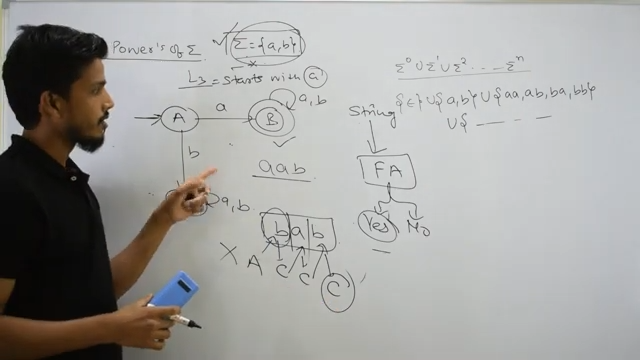 Power's of Σ
Σ = {a,b}
L3 = starts with 'a'
A
a
B
a,b
b
a,b
aab
b a b
X A C C C
Σ⁰ ∪ Σ¹ ∪ Σ² ... Σⁿ
{ε} ∪ {a,b} ∪ {aa, ab, ba, bb}
∪ {
String
FA
Yes
No